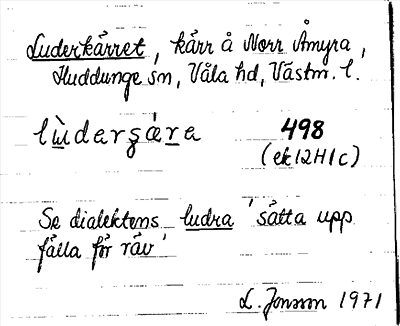 Luderkärret, kärr å Norr Åmyra,
Huddunge sn, Våla hd, Västm. l.
lùdarşä́ra 498
(ek 12H1c)
Se dialektens ludra 'sätta upp
fälla för räv'
L. Jonsson 1971